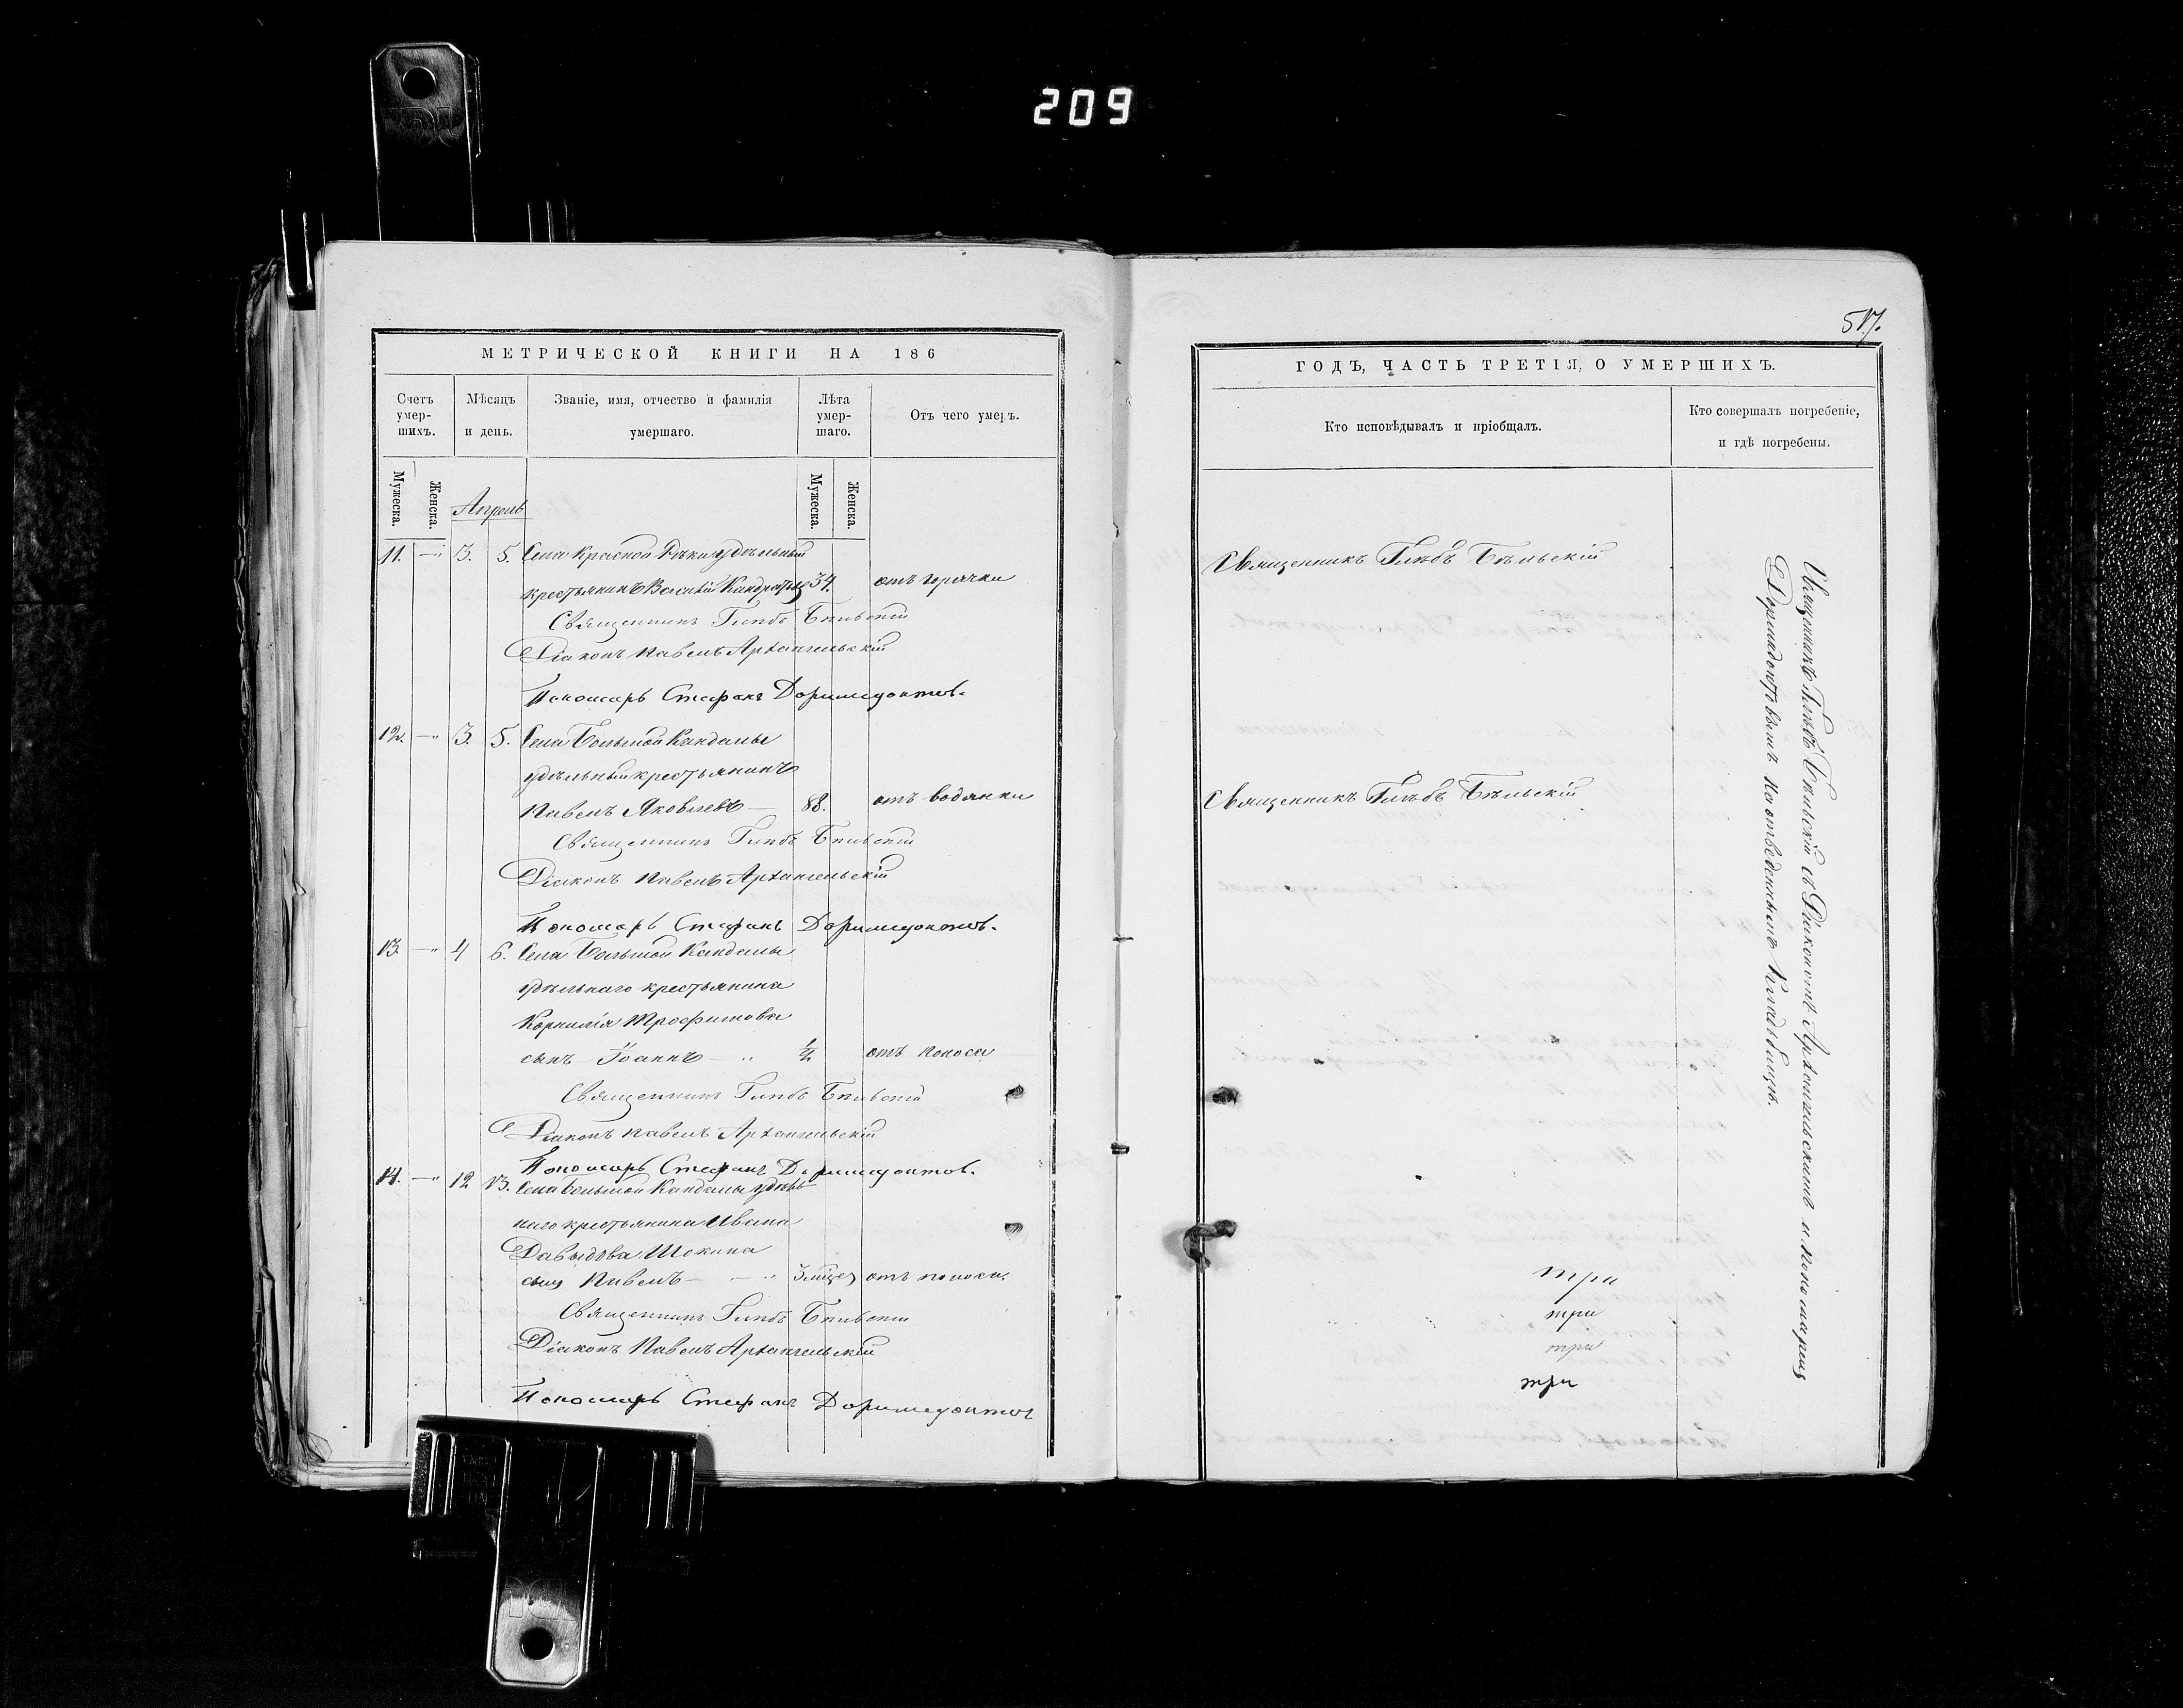 209
МЕТРИЧЕСКОЙ КНИГИ НА 186
Счетъ умер-шихъ.
Мѣсяцъ и день.
Званіе, имя, отчество и фамилія умершаго.
Лѣта умер-шаго.
Отъ чего умеръ.
Мужеска.
Женска.
Мужеска.
Женска.
Апрель
11. — 3. 5. Села Красной Рѣки удѣльный
крестьянинъ Василій Кандратьевъ 34. отъ горячки
Священникъ Глѣбъ Бѣльскій
Діаконъ Павелъ Архангельскій
Пономарь Стефанъ Доримедонтов.
12. — 3. 5. Села Большой Кандалы
удѣльный крестьянинъ
Павелъ Яковлевъ — 88. отъ водянки
Священникъ Глѣбъ Бѣльскій
Діаконъ Павелъ Архангельскій
Пономарь Стефанъ Доримедонтов.
13. — 4 6. Села Большой Кандалы
удѣльнаго крестьянина
Корнилія Трофимова
сынъ Іоаннъ — ½ отъ поноса
Священникъ Глѣбъ Бѣльскій
Діаконъ Павелъ Архангельскій
Пономарь Стефанъ Доримедонтов.
14. — 12 13. Села Большой Кандалы удѣль-
наго крестьянина Ивана
Давыдова Шокина
сынъ Павелъ — отъ поноса.
Священникъ Глѣбъ Бѣльскій
Діаконъ Павелъ Архангельскій
Пономарь Стефанъ Доримедонтов
517.
ГОДЪ, ЧАСТЬ ТРЕТІЯ, О УМЕРШИХЪ.
Кто исповѣдывалъ и пріобщалъ.
Кто совершалъ погребеніе, и гдѣ погребены.
Священникъ Глѣбъ Бѣльскій
Священникъ Глѣбъ Бѣльскій
три
три
три
три
Священникъ Глѣбъ Бѣльскій съ Діакономъ Архангельскимъ и пономаремъ
Доримедонтовымъ на отведенномъ кладбищѣ.